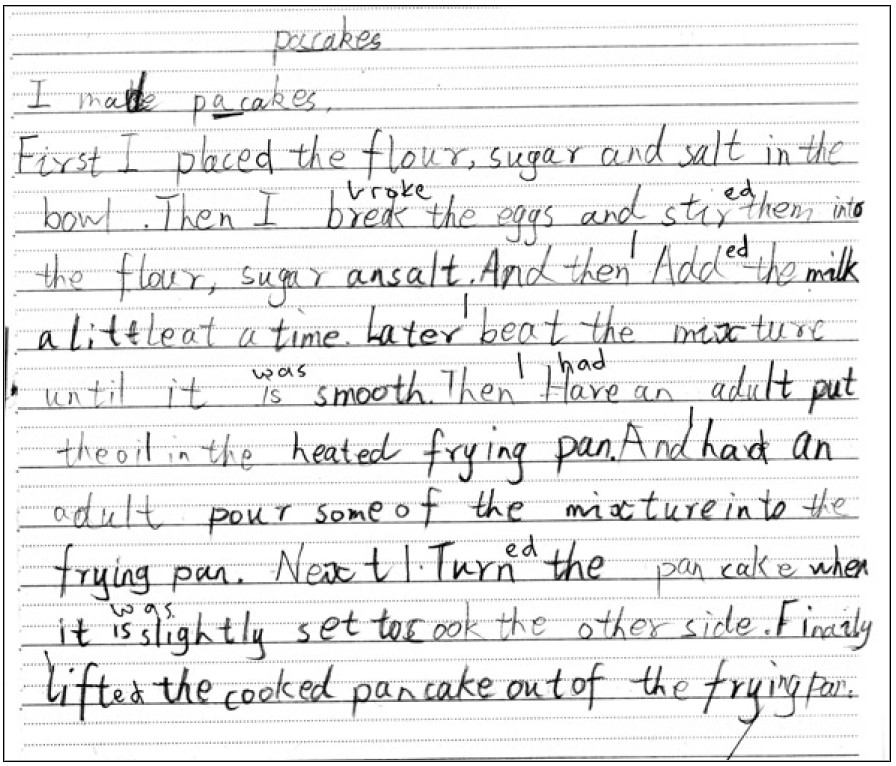 pacakes
I made pacakes.
First I placed the flour, sugar and salt in the
broke ed
bowl. Then I break the eggs and stir them into
I ed
the flour, sugar ansalt. And then Add the milk
I
a little at a time. Later beat the mixture
was I had
until it is smooth. Then Have an adult put
the oil in the heated frying pan. And had an
adult pour some of the mixture into the
ed
frying pan. Next I. Turn the pan cake when
was
it is slightly set to cook the other side. Finally
lifted the cooked pancake out of the frying pan.